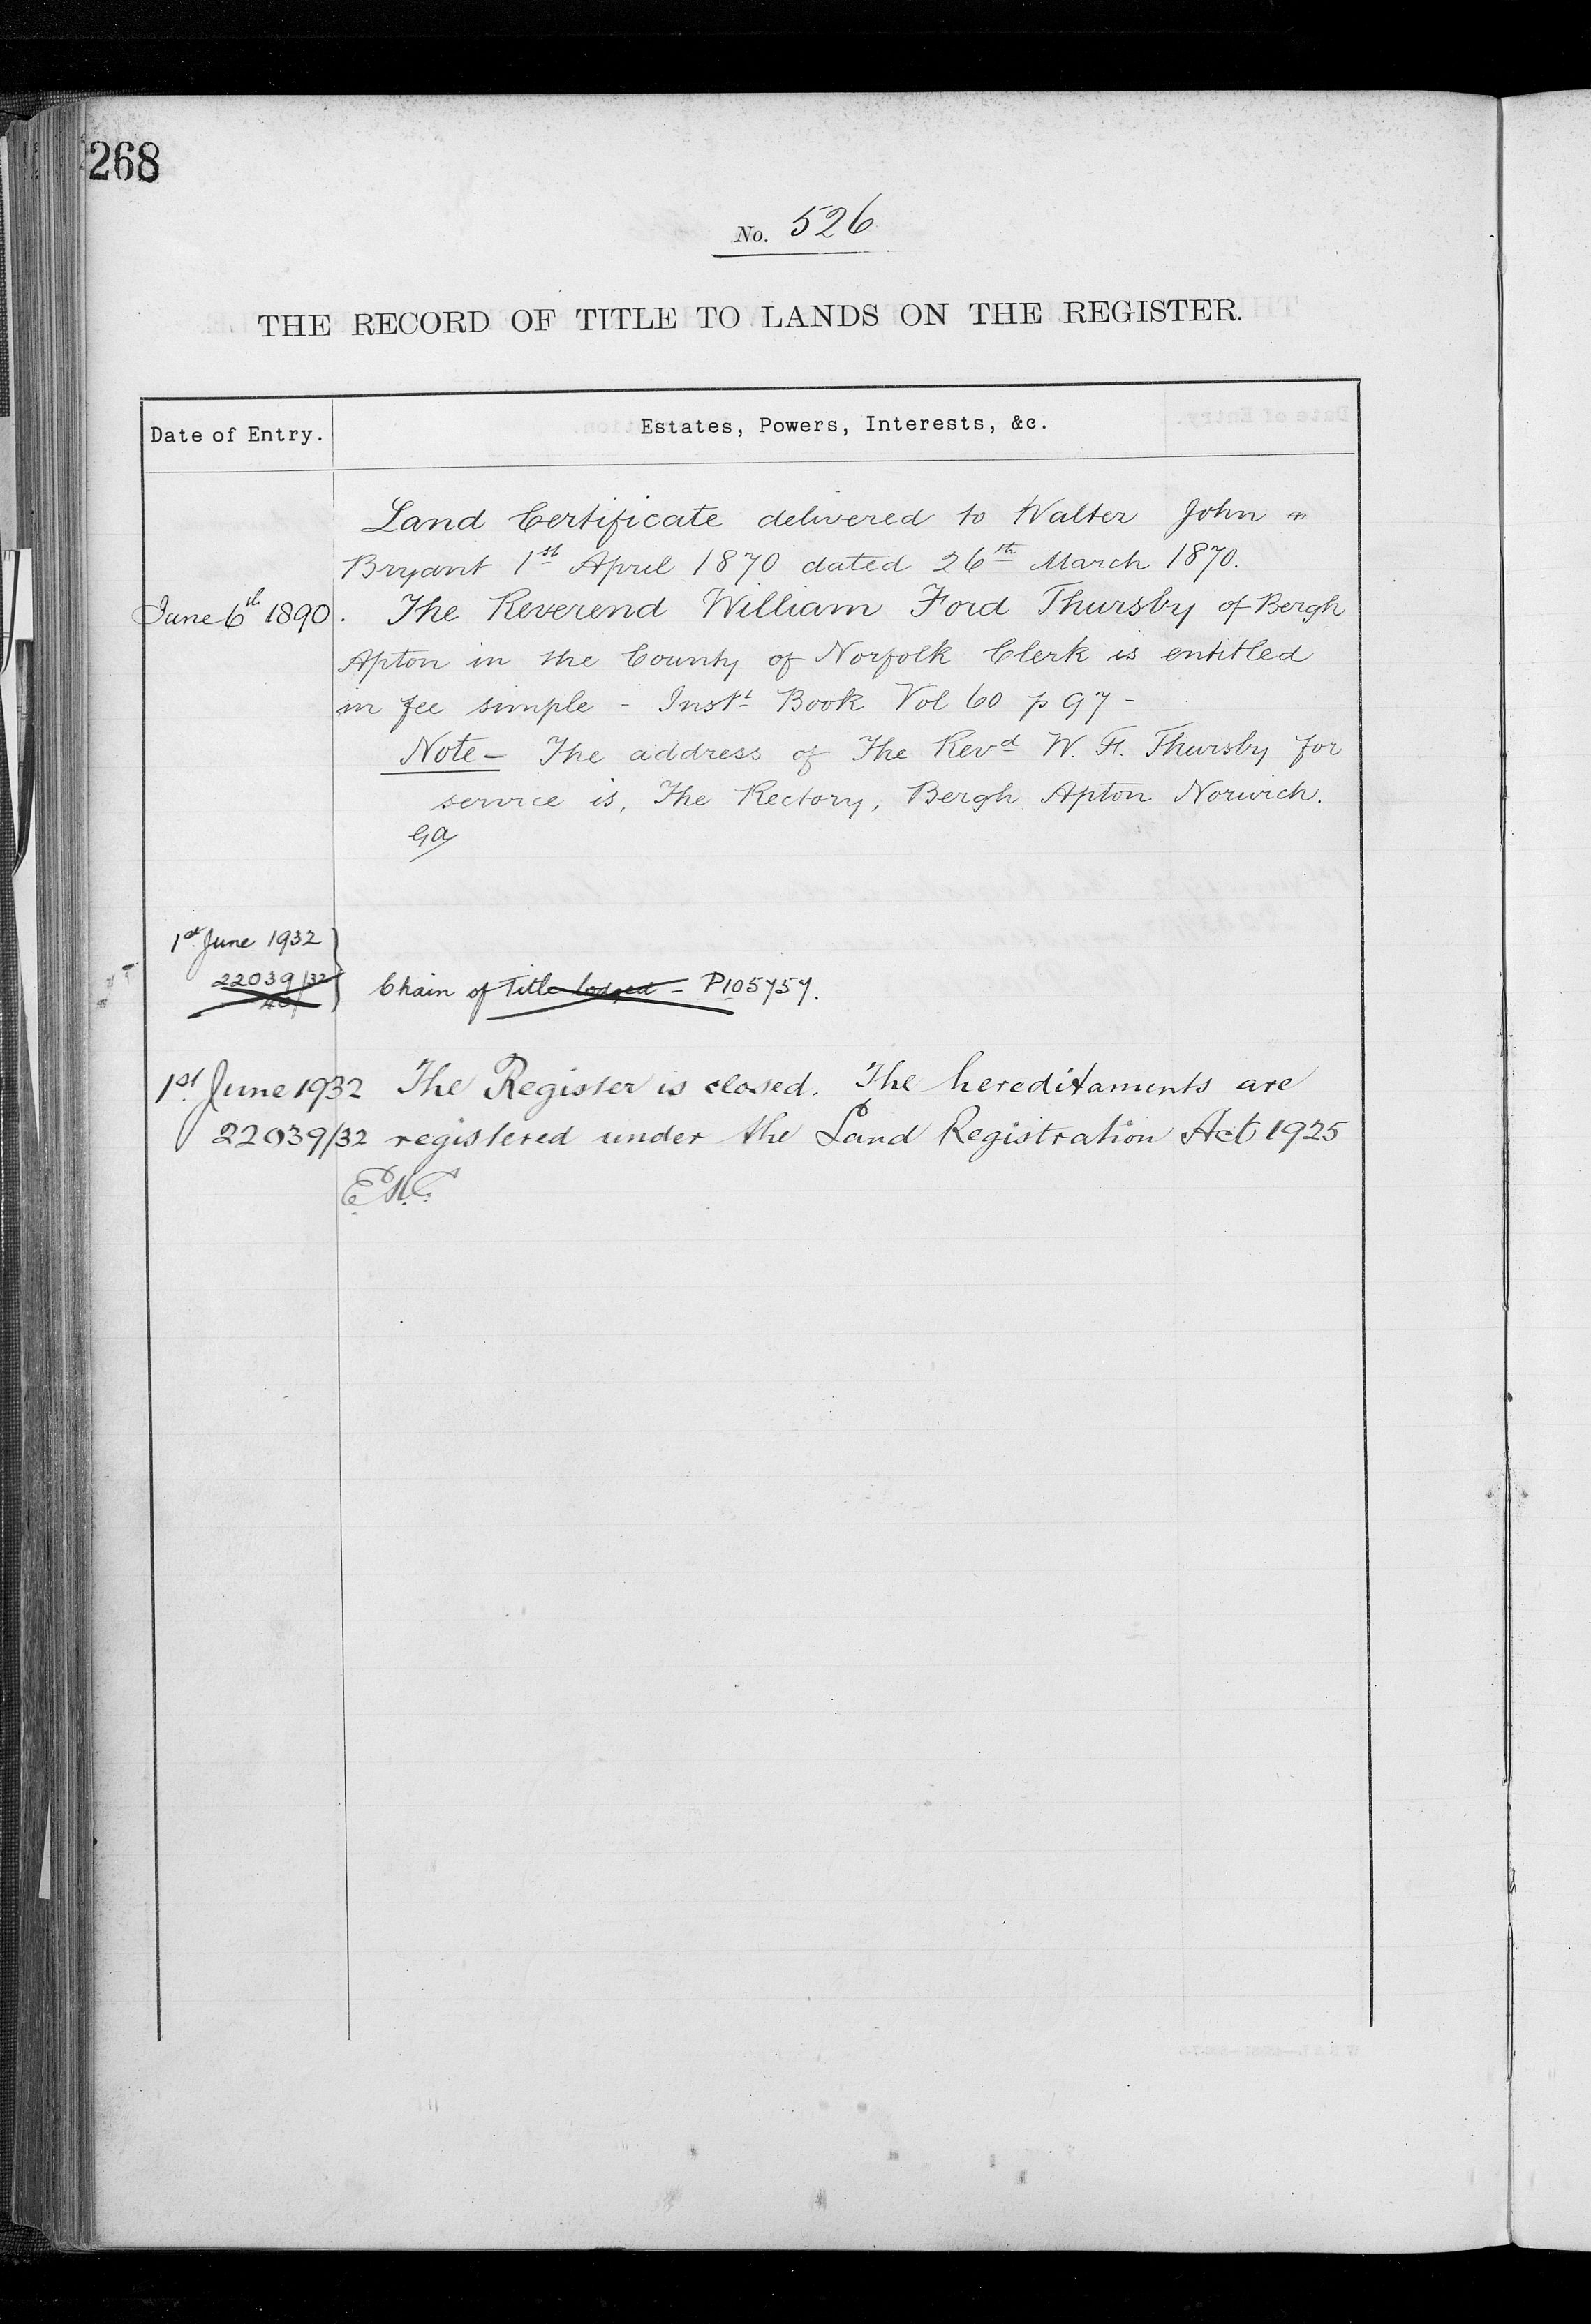 268
No. 526
THE RECORD OF TITLE TO LANDS ON THE REGISTER.
Date of Entry.
Estates, Powers, Interests, &c.
Land Certificate delivered to Walter John
Bryant 1st April 1870 dated 26th March 1870.
June 6th 1890. The Reverend William Ford Thursby of Bergh
Apton in the County of Norfolk Clerk is entitled
in fee simple - Instt Book Vol 60 p 97 -
Note - The address of The Revd W. F. Thursby for
service is, The Rectory, Bergh Apton Norwich.
GA
1st June 1932
22039/32 Chain of Title lodged - P105757.
1st June 1932 The Register is closed. The hereditaments are
22039/32 registered under the Land Registration Act 1925